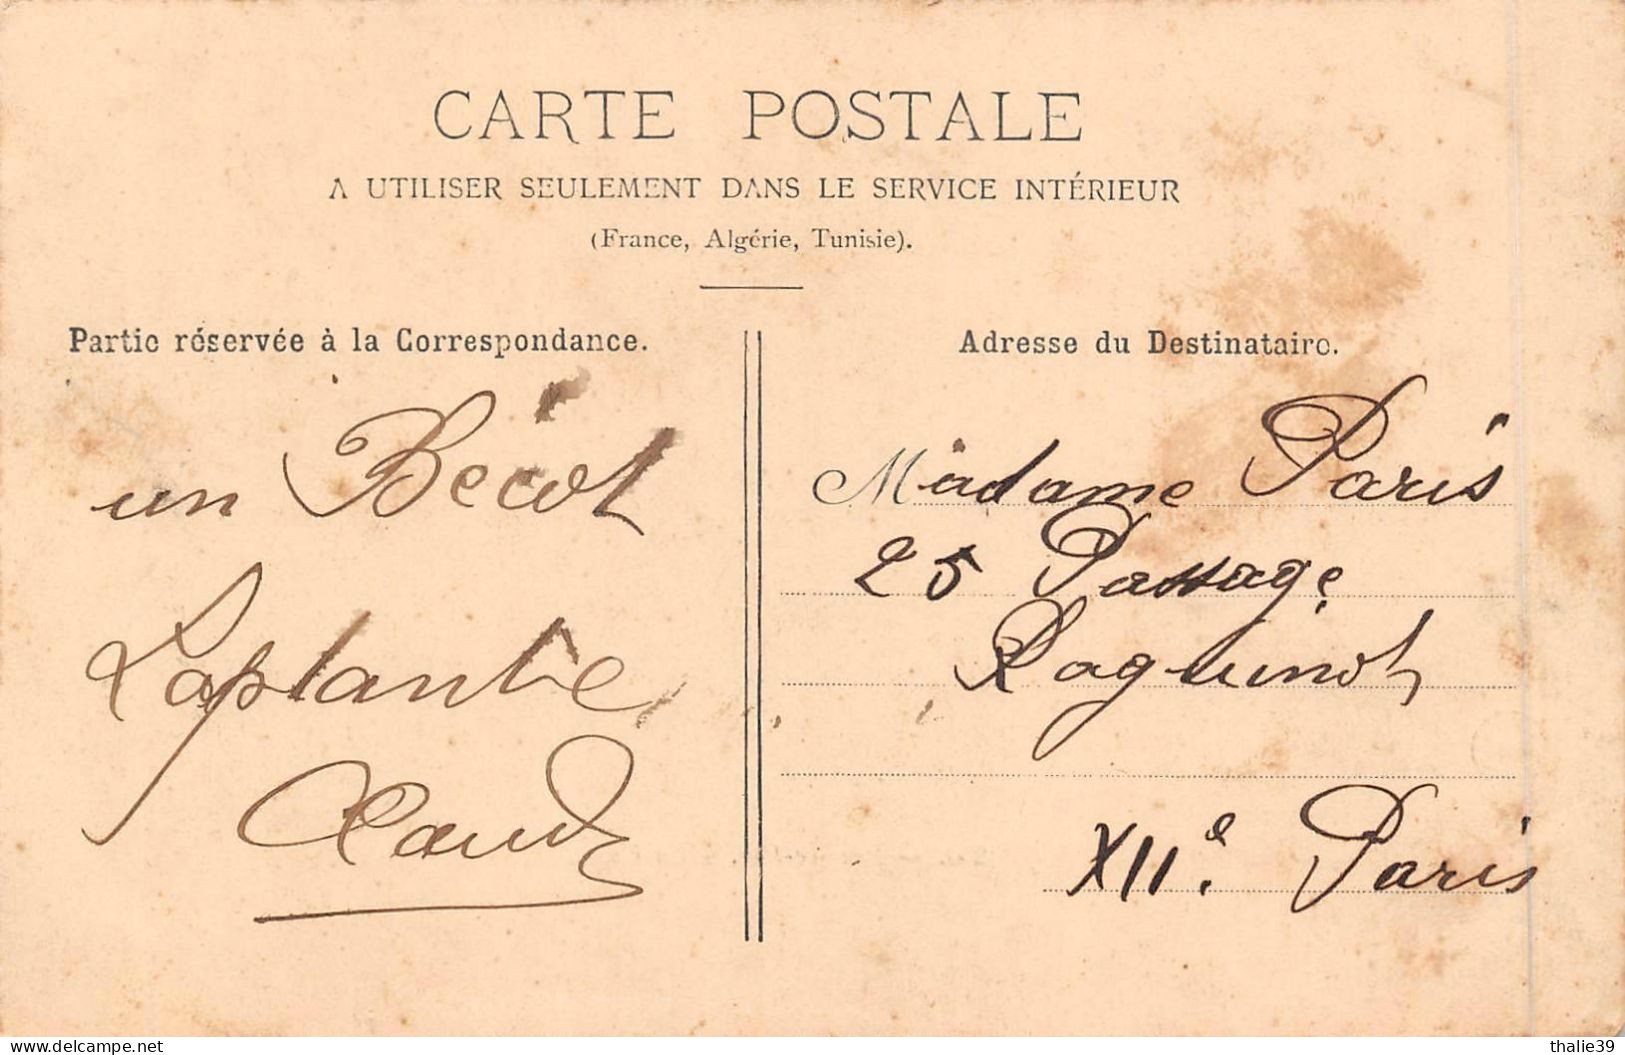 CARTE POSTALE
A UTILISER SEULEMENT DANS LE SERVICE INTÉRIEUR
(France, Algérie, Tunisie).
Partie réservée à la Correspondance.
un Bécot
Laplante
Adresse du Destinataire.
Madame Paris
25 Passage
Raguinot
XIIe. Paris
www.delcampe.net
thalie39